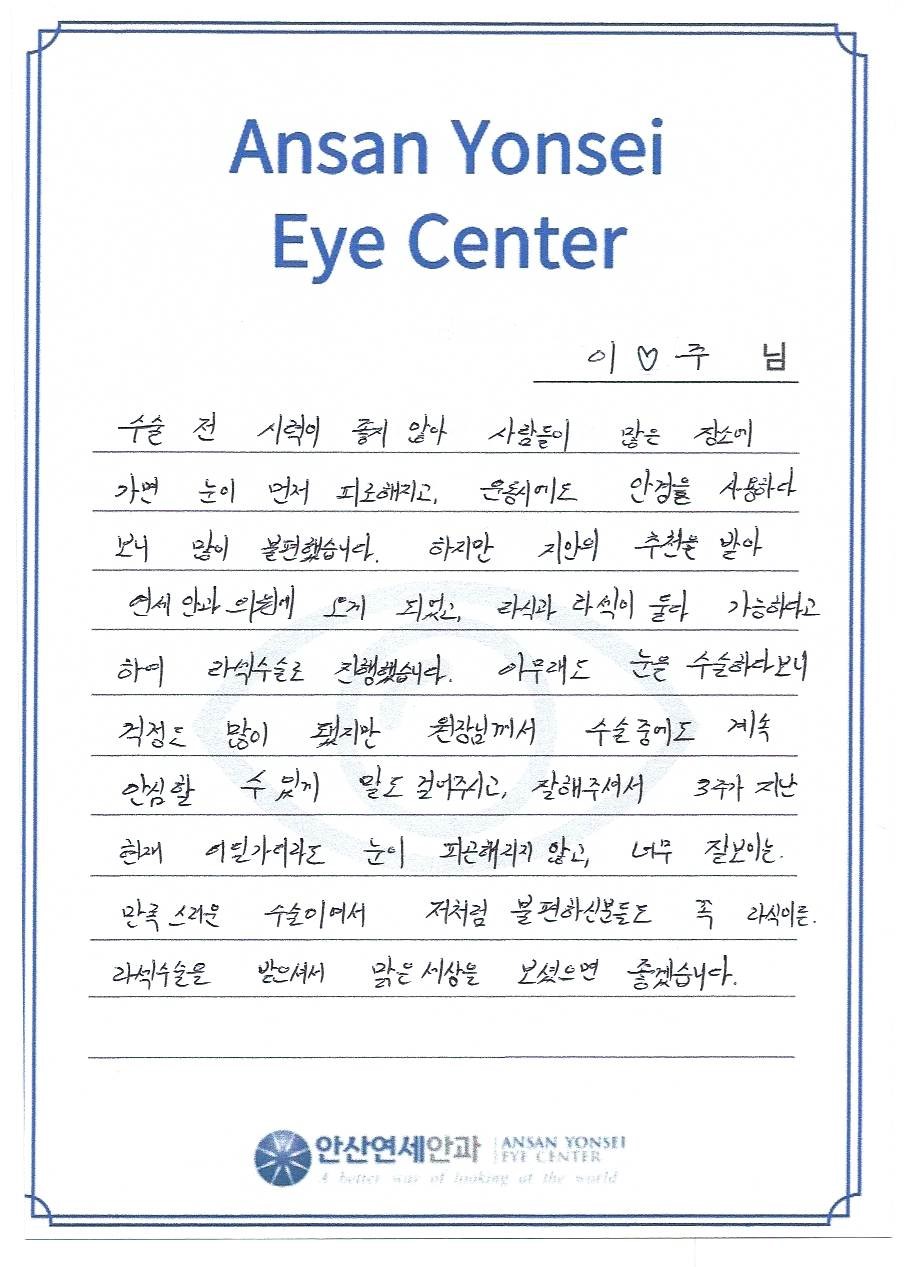 Ansan Yonsei
Eye Center
이♡주 님
수술 전 시력이 좋지 않아 사람들이 많은 장소에
가면 눈이 먼저 피로해지고, 운동시에도 안경을 사용하다
보니 많이 불편했습니다. 하지만 지인의 추천을 받아
연세 안과 의원에 오게 되었고, 라식과 라섹이 둘다 가능하다고
하여 라섹수술로 진행했습니다. 아무래도 눈을 수술하다보니
걱정도 많이 됐지만 원장님께서 수술중에도 계속
안심할 수 있게 말도 걸어주시고, 잘해주셔서 3주가 지난
현재 어딜가더라도 눈이 피곤해지지 않고, 너무 잘보이는.
만족스러운 수술이여서 저처럼 불편하신분들도 꼭 라식이든.
라섹수술을 받으셔서 맑은 세상을 보셨으면 좋겠습니다.
안산연세안과 ANSAN YONSEI
EYE CENTER
A better way of looking at the world